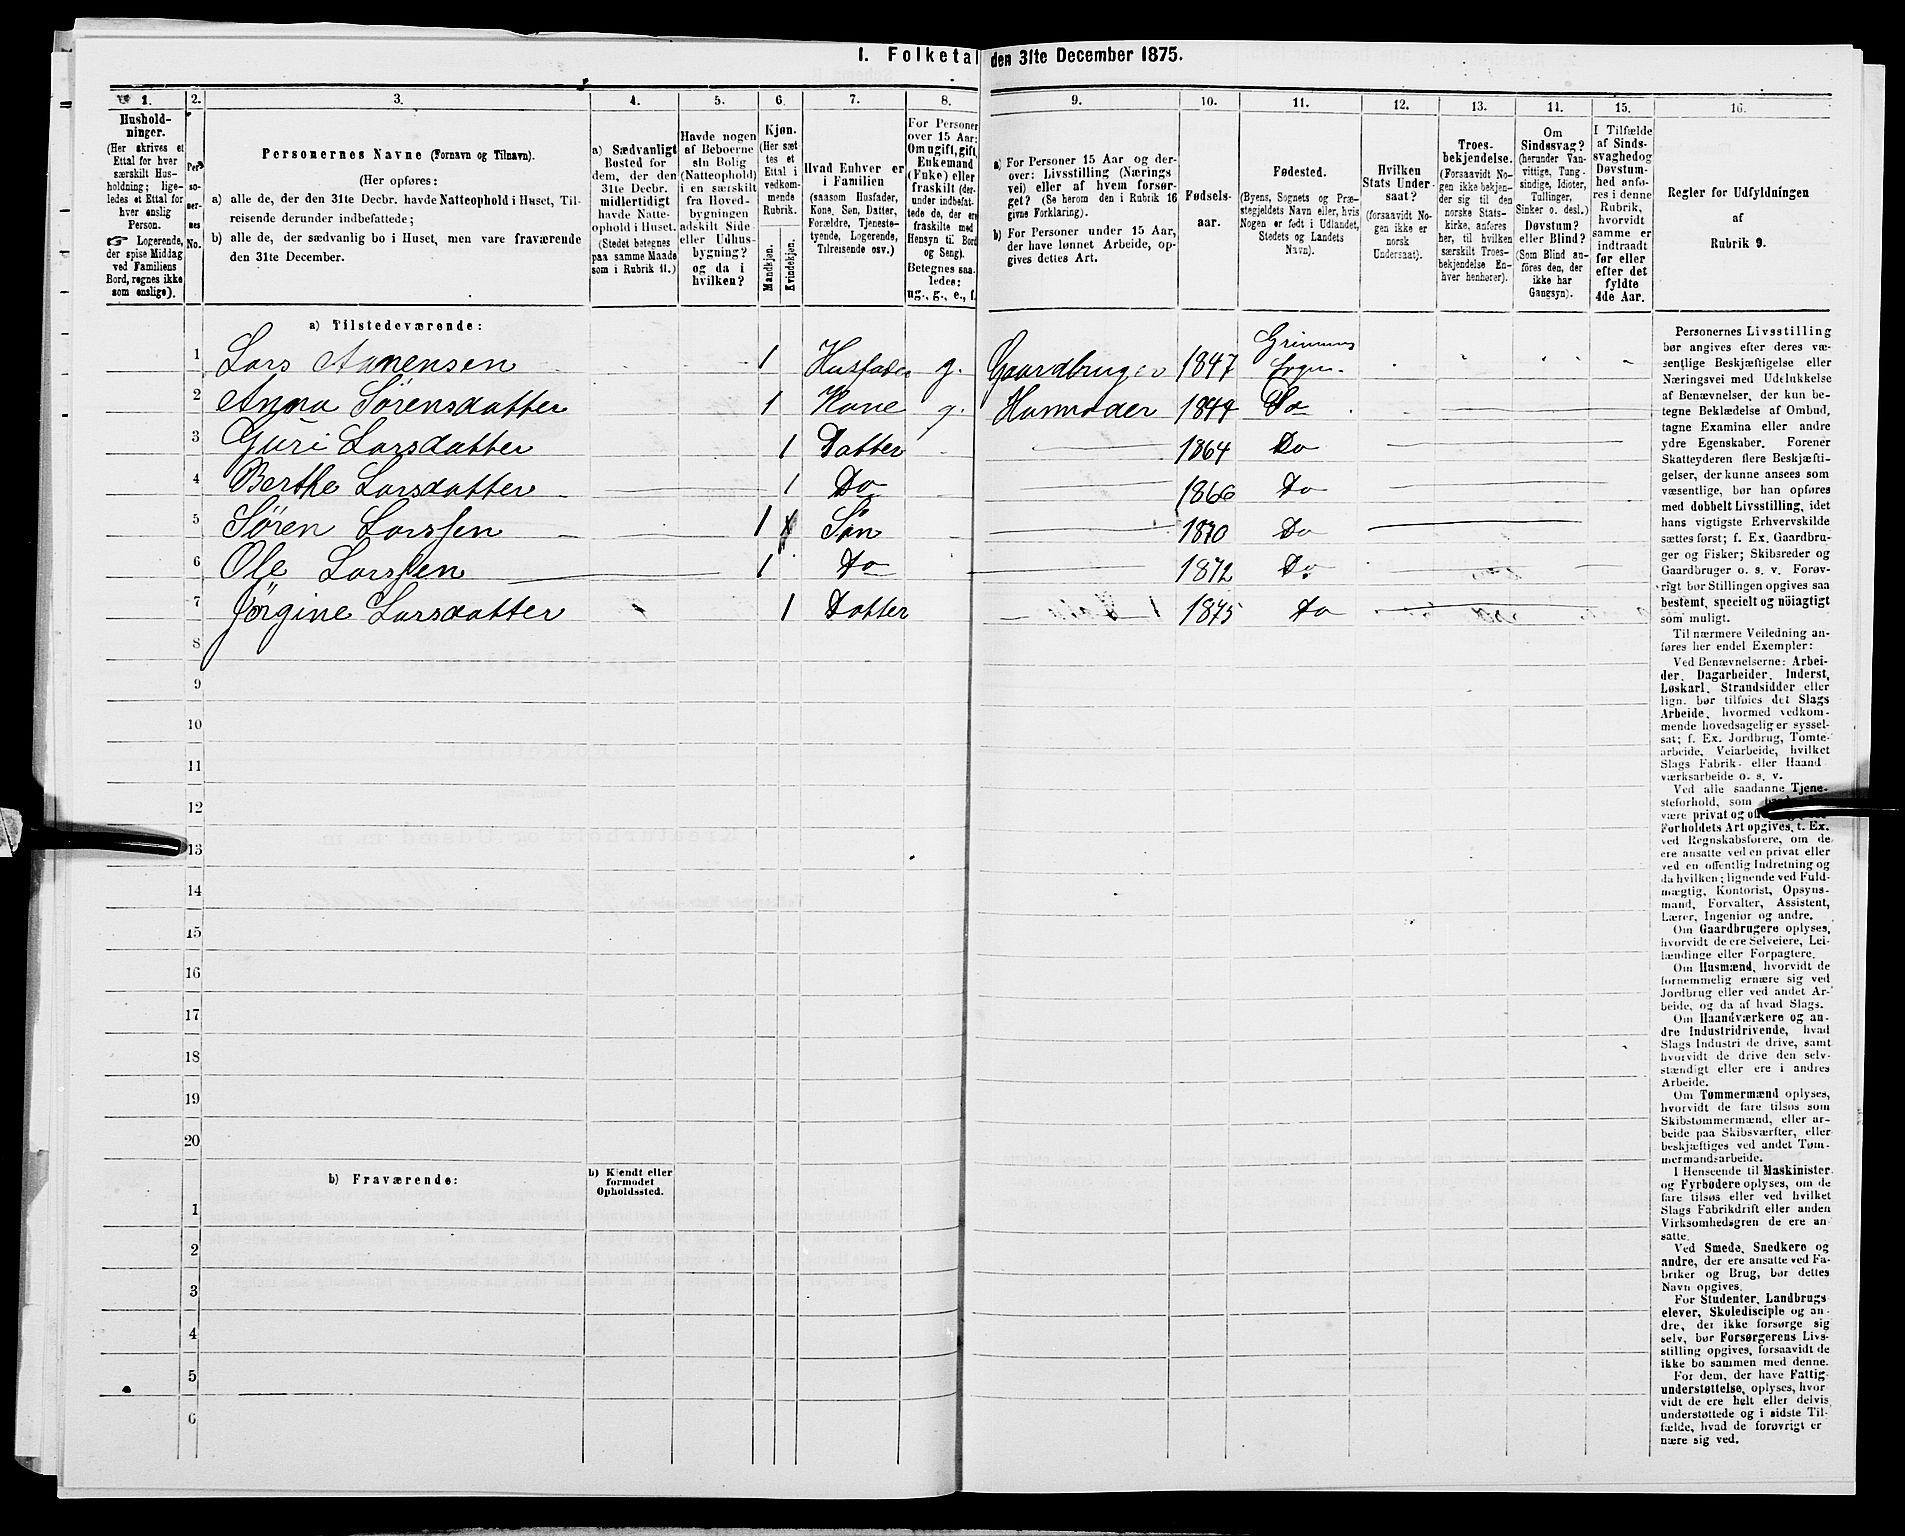 I. Folketal den 31te December 1875.
1. 2. 3. 4. 5. 6. 7. 8. 9. 10. 11. 12. 13. 14. 15. 16.
Hushold-
ninger.
(Her skrives et
Ettal for hver
særskilt Hus-
holdning; lige-
ledes et Ettal for
hver enslig
Person.
☞ Logerende,
der spise Middag
ved Familiens
Bord, regnes ikke
som enslige).
Per-
so-
ner-
nes
No.
Personernes Navne (Fornavn og Tilnavn).
(Her opføres:
a) alle de, der den 31te Decbr. havde Natteophold i Huset, Til-
reisende derunder indbefattede;
b) alle de, der sædvanlig bo i Huset, men vare fraværende
den 31te December.
a) Sædvanligt
Bosted for
dem, der den
31te Decbr.
midlertidigt
havde Natte-
ophold i Huset.
(Stedet betegnes
paa samme Maade
som i Rubrik 11.)
Havde nogen
af Beboerne
sin Bolig
(Natteophold)
i en særskilt
fra Hoved-
bygningen
adskilt Side-
eller Udhus-
bygning?
og da i
hvilken?
Kjøn.
(Her sæt-
tes et
Ettal i
vedkom-
mende
Rubrik.
Mandkjøn.
Kvindekjøn.
Hvad Enhver er
i Familien
(saasom Husfader,
Kone, Søn, Datter,
Forældre, Tjeneste-
tyende, Logerende,
Tilreisende osv.)
For Personer
over 15 Aar:
Om ugift, gift,
Enkemand
(Enke) eller
fraskilt (der-
under indbefat-
tede de, der ere
fraskilte med
Hensyn til Bord
og Seng).
Betegnes saa-
ledes:
ug., g., e., f.
a) For Personer 15 Aar og der-
over: Livsstilling (Nærings-
vei) eller af hvem forsør-
get? (Se herom den i Rubrik 16
givne Forklaring).
b) For Personer under 15 Aar,
der have lønnet Arbeide, op-
gives dettes Art.
Fødsels-
aar.
Fødested.
(Byens, Sognets og Præ-
stegjeldets Navn eller, hvis
Nogen er født i Udlandet,
Stedets og Landets
Navn).
Hvilken
Stats Under-
saat?
(forsaavidt No-
gen ikke er
norsk
Undersaat).
Troes-
bekjendelse.
(Forsaavidt No-
gen ikke bekjen-
der sig til den
norske Stats-
kirke, anføres
her, til hvilken
særskilt Troes-
bekjendelse En-
hver henhører).
Om
Sindssvag?
(herunder Van-
vittige, Tung-
sindige, Idioter,
Tullinger,
Sinker o. desl.)
Døvstum?
eller Blind?
(Som Blind an-
føres den, der
ikke har
Gangsyn).
I Tilfælde
af Sinds-
svaghed og
Døvstum-
hed anfø-
res i denne
Rubrik,
hvorvidt
samme er
indtraadt
før eller
efter det
fyldte
4de Aar.
Regler for Udfyldningen
af
Rubrik 9.
a) Tilstedeværende:
1 Lars Aanensen 1 Husfader g. Gaardbruger 1847 Grimnes Sogn.
2 Anna Sørensdatter 1 Kone g. Husmoder 1844 Do
3 Guri Larsdatter 1 Datter 1864 Do
4 Berthe Larsdatter 1 Do 1866 Do
5 Søren Larssen 1 Søn 1870 Do
6 Ole Larssen 1 Do 1872 Do
7 Jørgine Larsdatter 1 Datter 1875 Do
8
9
10
11
12
13
14
15
16
17
18
19
20
b) Fraværende:
b) Kjendt eller
formodet
Opholdssted.
1
2
3
4
5
6
Personernes Livsstilling
bør angives efter deres væ-
sentlige Beskjæftigelse eller
Næringsvei med Udelukkelse
af Benævnelser, der kun be-
tegne Beklædelse af Ombud,
tagne Examina eller andre
ydre Egenskaber. Forener
Skatteyderen flere Beskjæfti-
gelser, der kunne ansees som
væsentlige, bør han opføres
med dobbelt Livsstilling, idet
hans vigtigste Erhvervskilde
sættes først; f. Ex. Gaardbru-
ger og Fisker; Skibsreder og
Gaardbruger o. s. v. Forøv-
rigt bør Stillingen opgives saa
bestemt, specielt og nöiagtigt
som muligt.
Til nærmere Veiledning an-
føres her endel Exempler:
Ved Benævnelserne: Arbei-
der, Dagarbeider, Inderst,
Løskarl, Strandsidder eller
lign. bør tilføies det Slags
Arbeide, hvormed vedkom-
mende hovedsagelig er syssel-
sat; f. Ex. Jordbrug, Tomte-
arbeide, Veiarbeide, hvilket
Slags Fabrik- eller Haand-
værksarbeide o. s. v.
Ved alle saadanne Tjene-
steforhold, som
være privat og
Forholdets Art opgives, t. Ex.
ved Regnskabsførere, om de
ere ansatte ved en privat eller
ved en offentlig Indretning og
da hvilken; lignende ved Fuld-
mægtig, Kontorist, Opsyns-
mand, Forvalter, Assistent,
Lærer, Ingeniør og andre.
Om Gaardbrugere oplyses,
hvorvidt de ere Selveiere, Lei-
lændinge eller Forpagtere.
Om Husmænd, hvorvidt de
fornemmelig ernære sig ved
Jordbrug eller ved andet Ar-
beide, og da af hvad Slags.
Om Haandværkere og an-
dre Industridrivende, hvad
Slags Industri de drive, samt
hvorvidt de drive den selv-
stændigt eller ere i andres
Arbeide.
Om Tømmermænd oplyses,
hvorvidt de fare tilsøs som
Skibstømmermænd, eller ar-
beide paa Skibsværfter, eller
beskjæftiges ved andet Tøm-
mermandsarbeide.
I Henseende til Maskinister
og Fyrbødere oplyses, om de
fare tilsøs eller ved hvilket
Slags Fabrikdrift eller anden
Virksomhedsgren de ere an-
satte.
Ved Smede, Snedkere og
andre, der ere ansatte ved Fa-
briker og Brug, bør dettes
Navn opgives.
For Studenter, Landbrugs-
elever, Skoledisciple og an-
dre, der ikke forsørge sig
selv, bør Forsørgerens Livs-
stilling opgives, forsaavidt de
ikke bo sammen med denne.
For dem, der have Fattig-
understøttelse, oplyses, hvor-
vidt de ere helt eller delvis
understøttede og i sidste Til-
fælde, hvad de forøvrigt er-
nære sig ved.